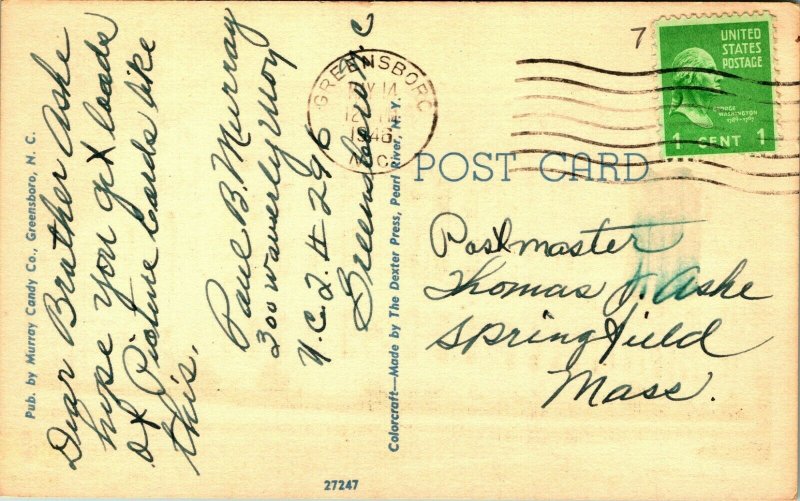 Pub. by Murray Candy Co., Greensboro, N. C.
Dear Brother Ashe
hope you get loads
of Picture Cards like
this.
Paul B. Murray
300 Waverly Way
Greensboro N.C
Colorcraft—Made by The Dexter Press, Pearl River, N. Y.
27247
GREENSBORO
MAY 14
1946
N.C.
7
UNITED
STATES
POSTAGE
GEORGE
WASHINGTON
1789-1797
1 CENT 1
POST CARD
Postmaster
Thomas J. Ashe
Springfield
Mass.